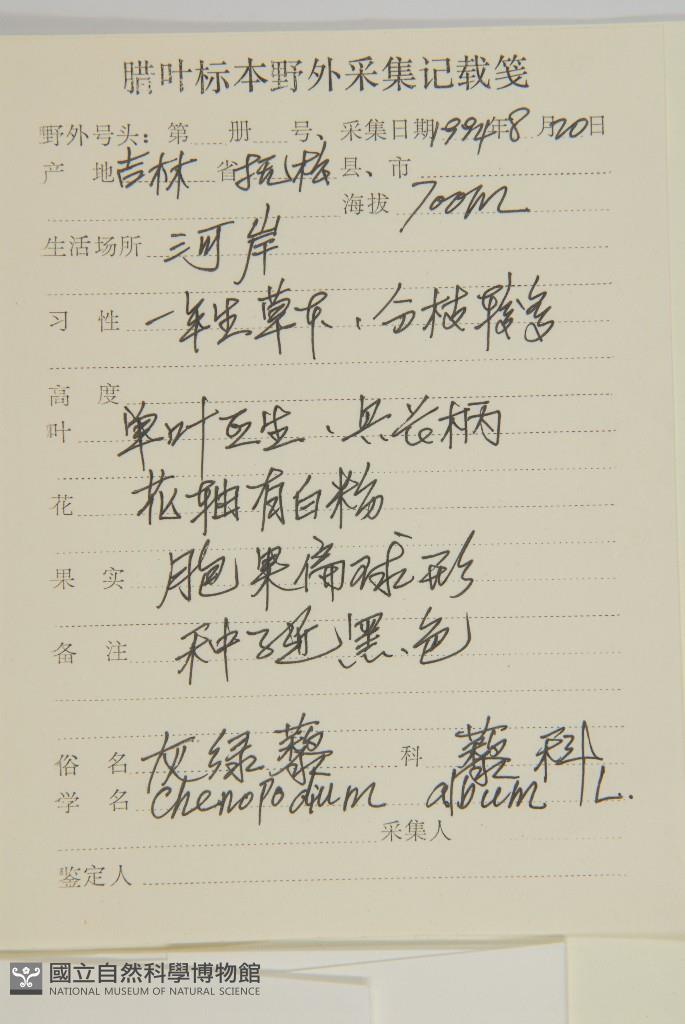 腊叶标本野外采集记载笺
野外号头：第 册 号、采集日期1994年8月20日
产 地 吉林 省 抚松 县、市
海拔 700m
生活场所 河岸
习 性 一年生草本、分枝较多
高 度
叶 单叶互生、具长柄
花 花轴有白粉
果 实 胞果扁球形
备 注 种子近黑色
俗 名 灰绿藜 科 藜科
学 名 Chenopodium album L.
采集人
鉴定人
國立自然科學博物館
NATIONAL MUSEUM OF NATURAL SCIENCE